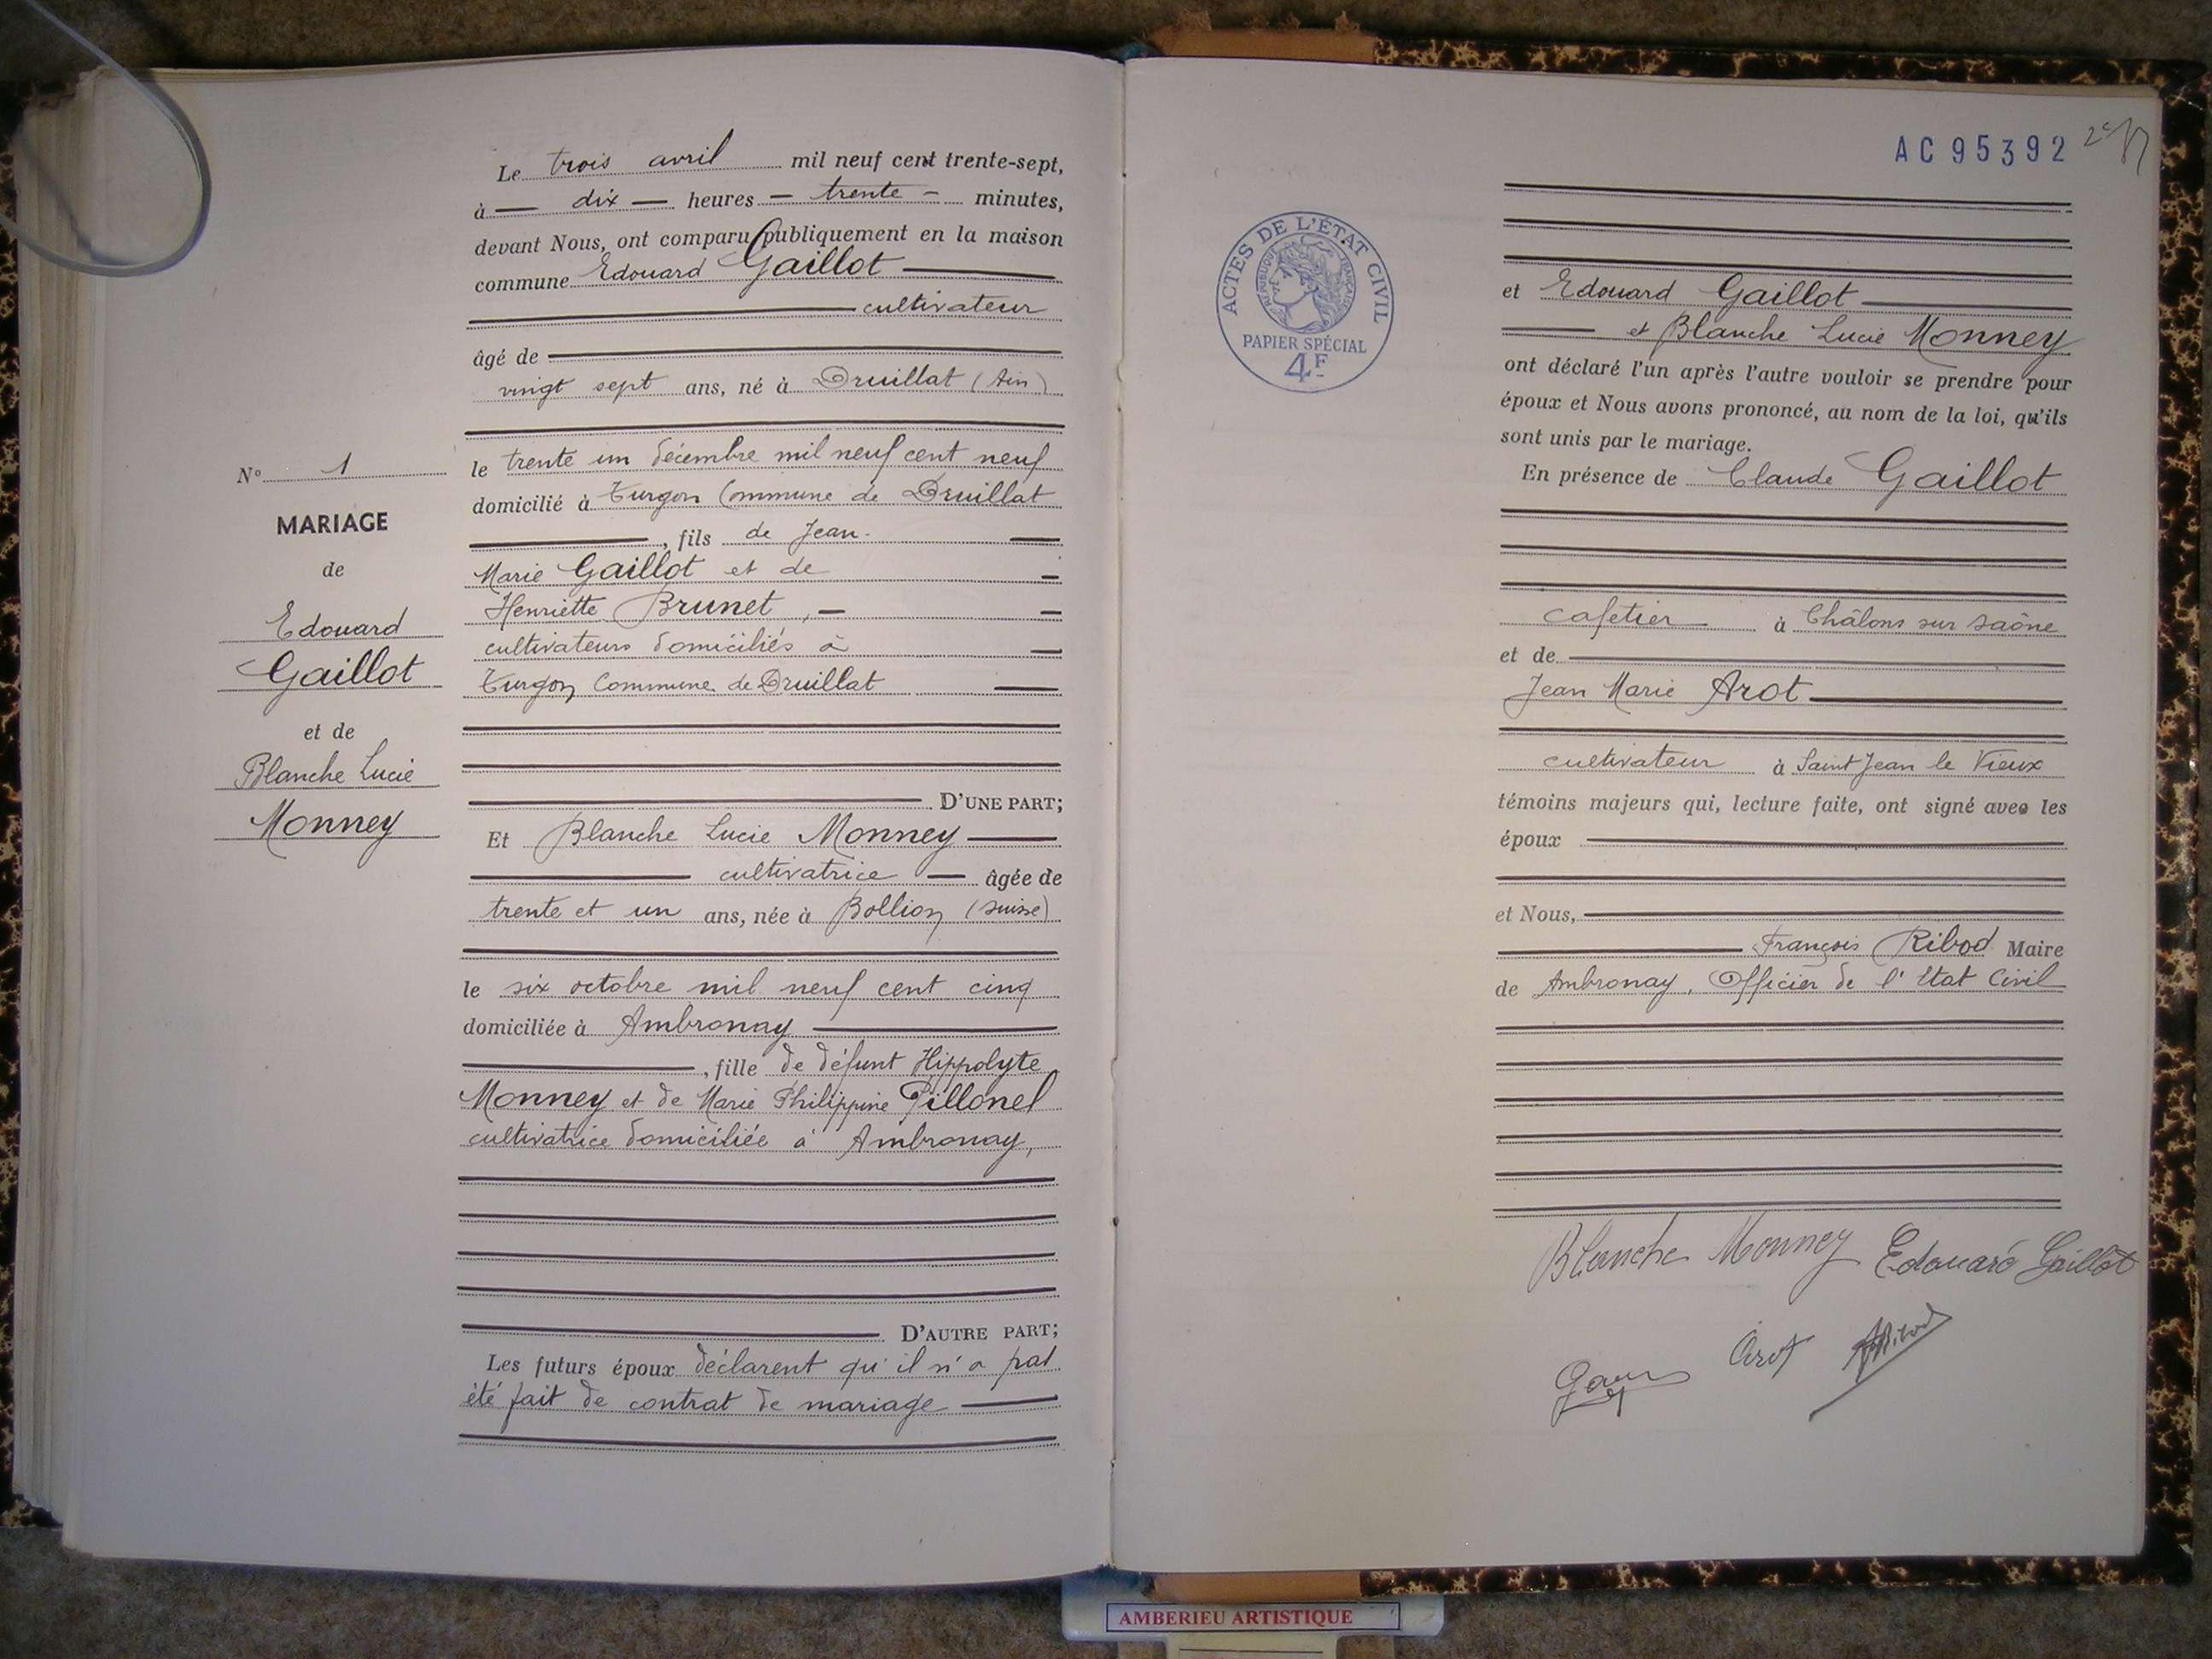 N° 1
MARIAGE
de
Edouard
Gaillot
et de
Blanche Lucie
Monney
Le trois avril mil neuf cent trente-sept,
à dix heures trente minutes,
devant Nous, ont comparu publiquement en la maison
commune Edouard Gaillot
cultivateur
âgé de
vingt sept ans, né à Druillat (Ain)
le trente un décembre mil neuf cent neuf
domicilié à Turgon Commune de Druillat
, fils de Jean-
Marie Gaillot et de
Henriette Brunet,
cultivateurs domiciliés à
Turgon Commune de Druillat
D'UNE PART;
Et Blanche Lucie Monney
cultivatrice âgée de
trente et un ans, née à Bollion (suisse)
le six octobre mil neuf cent cinq
domiciliée à Ambronay
, fille de défunt Hippolyte
Monney et de Marie Philippine Pillonel
cultivatrice domiciliée à Ambronay,
D'AUTRE PART;
Les futurs époux déclarent qu'il n'a pas
été fait de contrat de mariage
AC95392
ACTES DE L'ÉTAT CIVIL
RÉPUBLIQUE FRANÇAISE
PAPIER SPÉCIAL
4F
et Edouard Gaillot
et Blanche Lucie Monney
ont déclaré l'un après l'autre vouloir se prendre pour
époux et Nous avons prononcé, au nom de la loi, qu'ils
sont unis par le mariage.
En présence de Claude Gaillot
cafetier à Châlons sur saône
et de
Jean Marie Arot
cultivateur à Saint Jean le Vieux
témoins majeurs qui, lecture faite, ont signé avec les
époux
et Nous,
François Ribod Maire
de Ambronay, Officier de l'Etat Civil
Blanche Monney Edouard Gaillot
Arot Ribod
AMBERIEU ARTISTIQUE